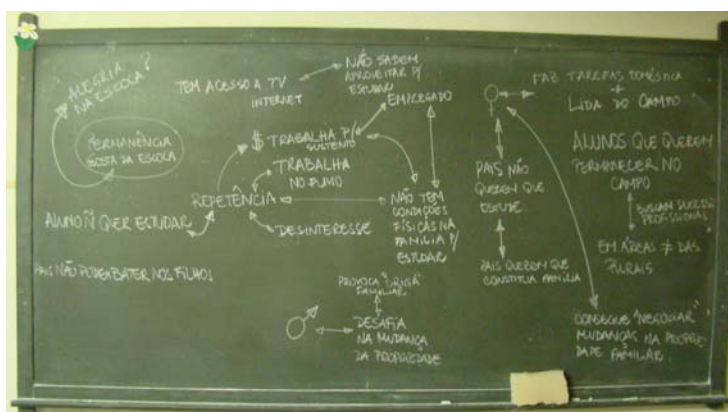 ALEGRIA
NA ESCOLA?
PERMANÊNCIA
GOSTA DA ESCOLA
ALUNO Ñ QUER ESTUDAR
PAIS NÃO PODEM BATER NOS FILHOS
TEM ACESSO A TV
INTERNET
NÃO SABEM
APROVEITAR P/
ESTUDAR
EMPREGADO
$ TRABALHA P/
SUSTENTO
TRABALHA
NO FUMO
REPETÊNCIA
DESINTERESSE
NÃO TEM
CONDIÇÕES
FÍSICAS NA
FAMILIA P/
ESTUDAR
PROVOCA "BRIGA"
FAMILIAR
♂
DESAFIA
NA MUDANÇA
DA PROPRIEDADE
♀
FAZ TAREFAS DOMÉSTICA
+
LIDA DO CAMPO
PAIS NÃO
QUEREM QUE
ESTUDE
PAIS QUEREM QUE
CONSTITUA FAMÍLIA
ALUNOS QUE QUEREM
PERMANECER NO
CAMPO
BUSCAM SUCESSO
PROFISSIONAL
EM ÁREAS ≠ DAS
RURAIS
CONSEGUE "NEGOCIAR"
MUDANÇAS NA PROPRIE
DADE FAMILIAR